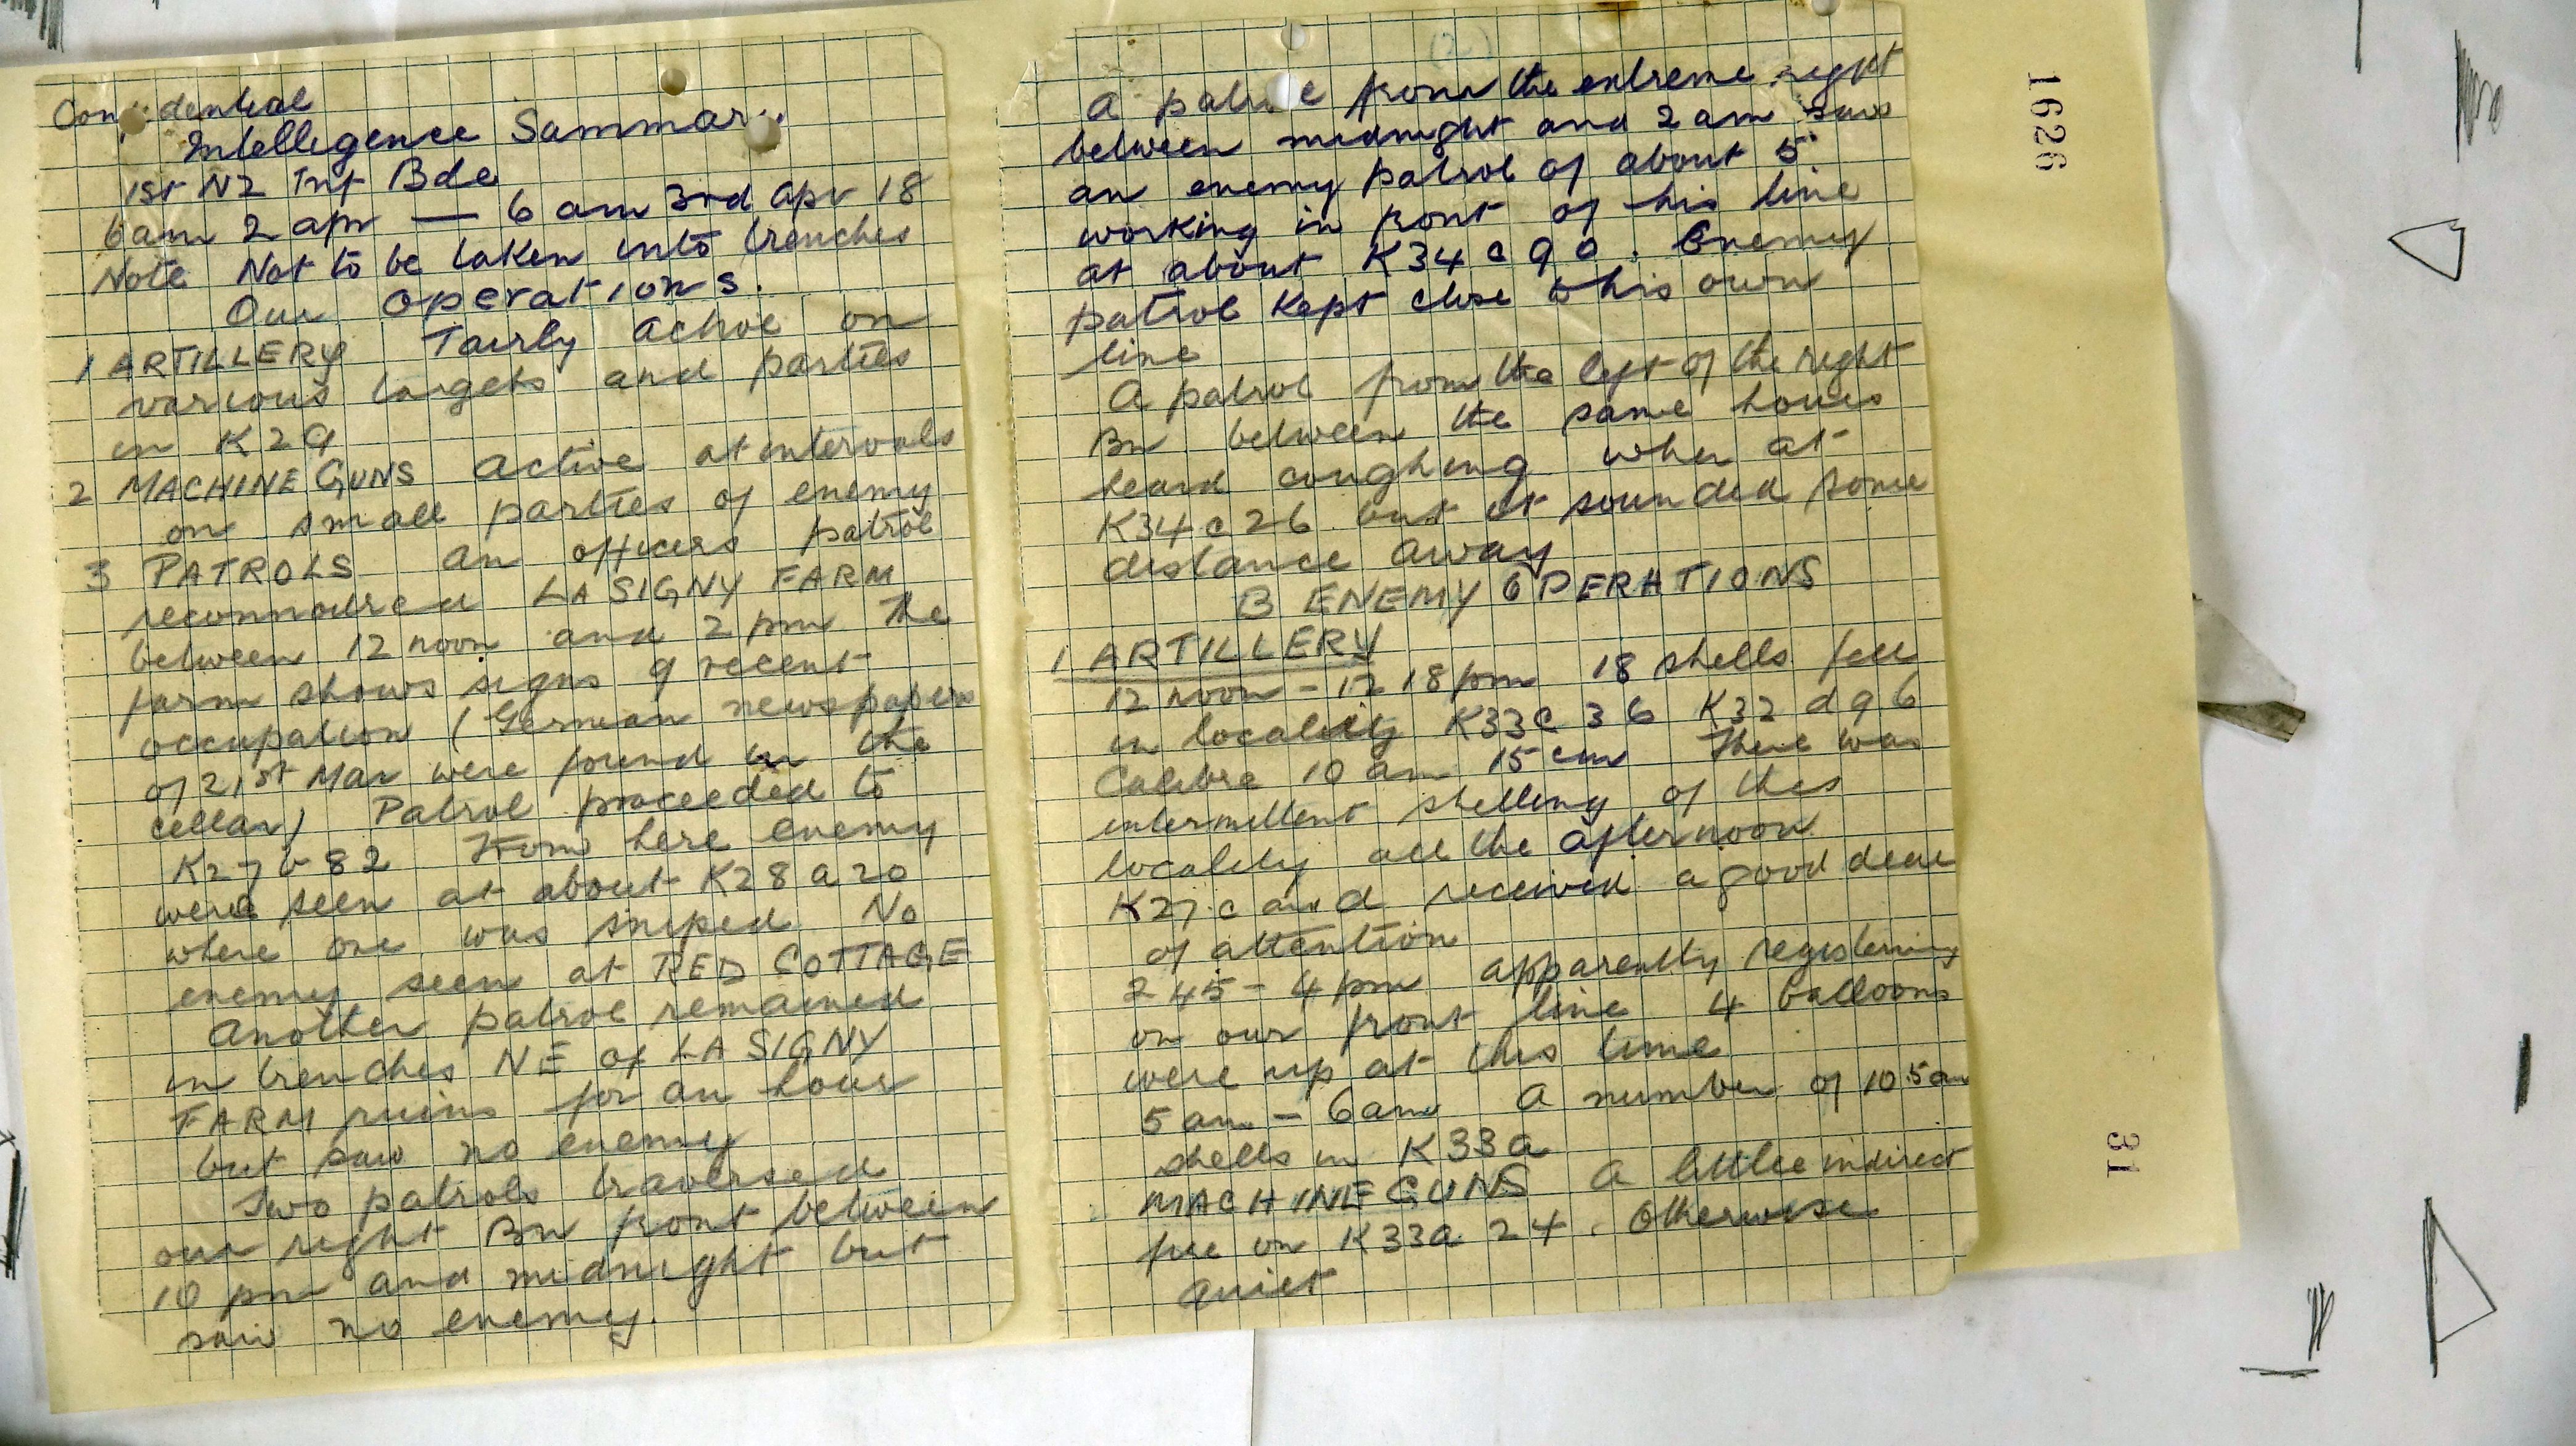 Confidential
Intelligence Summary
1st NZ Inf Bde
6 am 2 apr — 6 am 3rd apr 18
Note Not to be taken into trenches
Our Operations.
1 ARTILLERY Fairly active on
various targets and parties
in K29
2 MACHINE GUNS active at intervals
on small parties of enemy
3 PATROLS an officers patrol
reconnoitred LA SIGNY FARM
between 12 noon and 2 pm The
farm shows signs of recent
occupation (German newspapers
of 21st Mar were found in the
cellar) Patrol proceeded to
K27 b 82 From here enemy
were seen at about K28 a 20
where one was sniped No
enemy seen at RED COTTAGE
Another patrol remained
in trenches NE of LA SIGNY
FARM ruins for an hour
but saw no enemy
Two patrols traversed
our right Bn front between
10 pm and midnight but
saw no enemy.
(2)
A patrol from the extreme right
between midnight and 2 am saw
an enemy patrol of about 5
working in front of his line
at about K34 c 90. Enemy
patrol kept close to his own
line
A patrol from the left of the right
Bn between the same hours
heard coughing when at
K34 c 26 but it sounded some
distance away
B ENEMY OPERATIONS
1 ARTILLERY
12 noon - 12 18 pm 18 shells fell
in locality K33c 36 K32 d 96
Calibre 10 cm 15 cm There was
intermittent shelling of this
locality all the afternoon
K27.c and d received a good deal
of attention
2 45 - 4 pm apparently registering
on our front line 4 balloons
were up at this time
5 am - 6 am A number of 10.5 cm
shells in K33a
MACHINE GUNS A little indirect
fire on K33a 24. Otherwise
quiet
1626
31